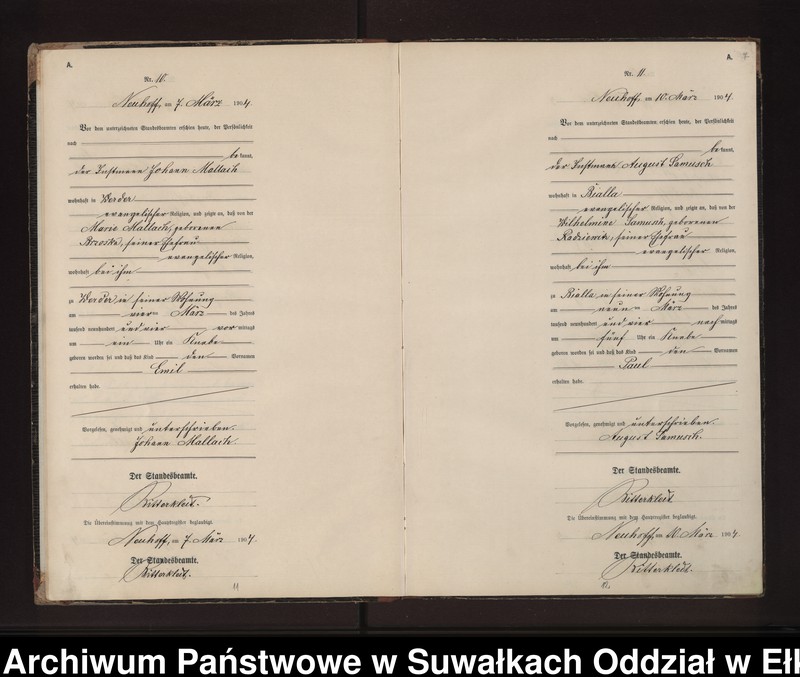 A.
Nr. 10.
Neuhoff, am 7. März 1904.
Vor dem unterzeichneten Standesbeamten erschien heute, der Persönlichkeit
nach
be kannt,
der Instmann Johann Mallach
wohnhaft in Werder
evangelischer Religion, und zeigte an, daß von der
Marie Mallach, geborenen
Brzoska, seiner Ehefrau
evangelischer Religion,
wohnhaft bei ihm
zu Werder, in seiner Wohnung
am vierten März des Jahres
tausend neunhundert und vier vor mittags
um ein Uhr ein Knabe
geboren worden sei und daß das Kind den Vornamen
Emil
erhalten habe.
Vorgelesen, genehmigt und unterschrieben.
Johann Mallach.
Der Standesbeamte.
Ritterkleit.
Die Übereinstimmung mit dem Hauptregister beglaubigt.
Neuhoff, am 7. März 1904.
Der Standesbeamte.
Ritterkleit.
11
A.
Nr. 11.
Neuhoff, am 10. März 1904.
Vor dem unterzeichneten Standesbeamten erschien heute, der Persönlichkeit
nach
be kannt,
der Instmann August Samusch
wohnhaft in Rialla
evangelischer Religion, und zeigte an, daß von der
Wilhelmine Samusch, geborenen
seiner Ehefrau
evangelischer Religion,
wohnhaft bei ihm
zu Rialla, in seiner Wohnung
am neunten März des Jahres
tausend neunhundert und vier nach mittags
um fünf Uhr ein Knabe
geboren worden sei und daß das Kind den Vornamen
Paul
erhalten habe.
Vorgelesen, genehmigt und unterschrieben.
August Samusch.
Der Standesbeamte.
Ritterkleit
Die Übereinstimmung mit dem Hauptregister beglaubigt.
Neuhoff, am 10. März 1904.
Der Standesbeamte.
Ritterkleit.
Archiwum Państwowe w Suwałkach Oddział w Eł